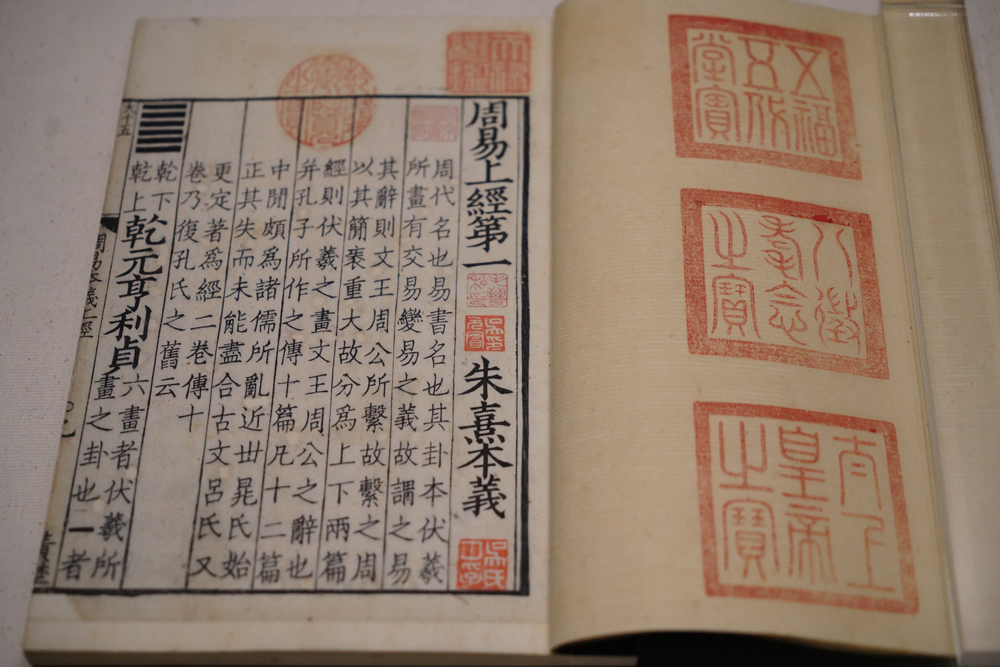 五福五代堂寶
八徵耄念之寶
太上皇帝之寶
周易上經第一
朱熹本義
周代名也易書名也其卦本伏羲
所畫有交易變易之義故謂之易
其辭則文王周公所繫故繫之周
以其簡袠重大故分爲上下兩篇
經則伏羲之畫文王周公之辭也
并孔子所作之傳十篇凡十二篇
中閒頗爲諸儒所亂近丗晁氏始
正其失而未能盡合古文呂氏又
更定著爲經二卷傳十
卷乃復孔氏之舊云
乾下
乾上
乾元亨利貞
六畫者伏羲所
畫之卦也一者